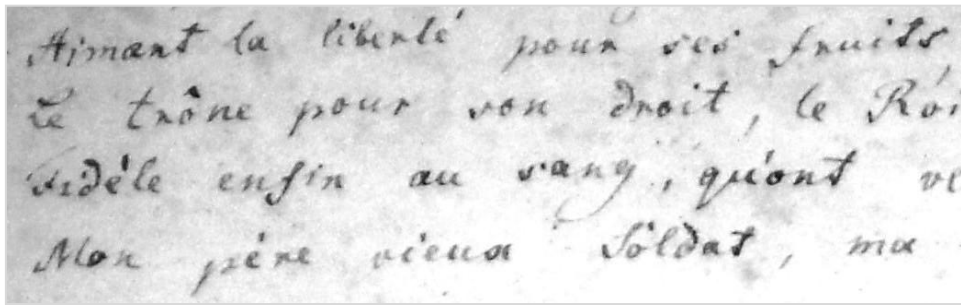 Aimant la liberté pour ses fruits
Le trône pour son droit, le Roi
Fidèle enfin au sang, qu'ont
Mon père vieux Soldat, ma